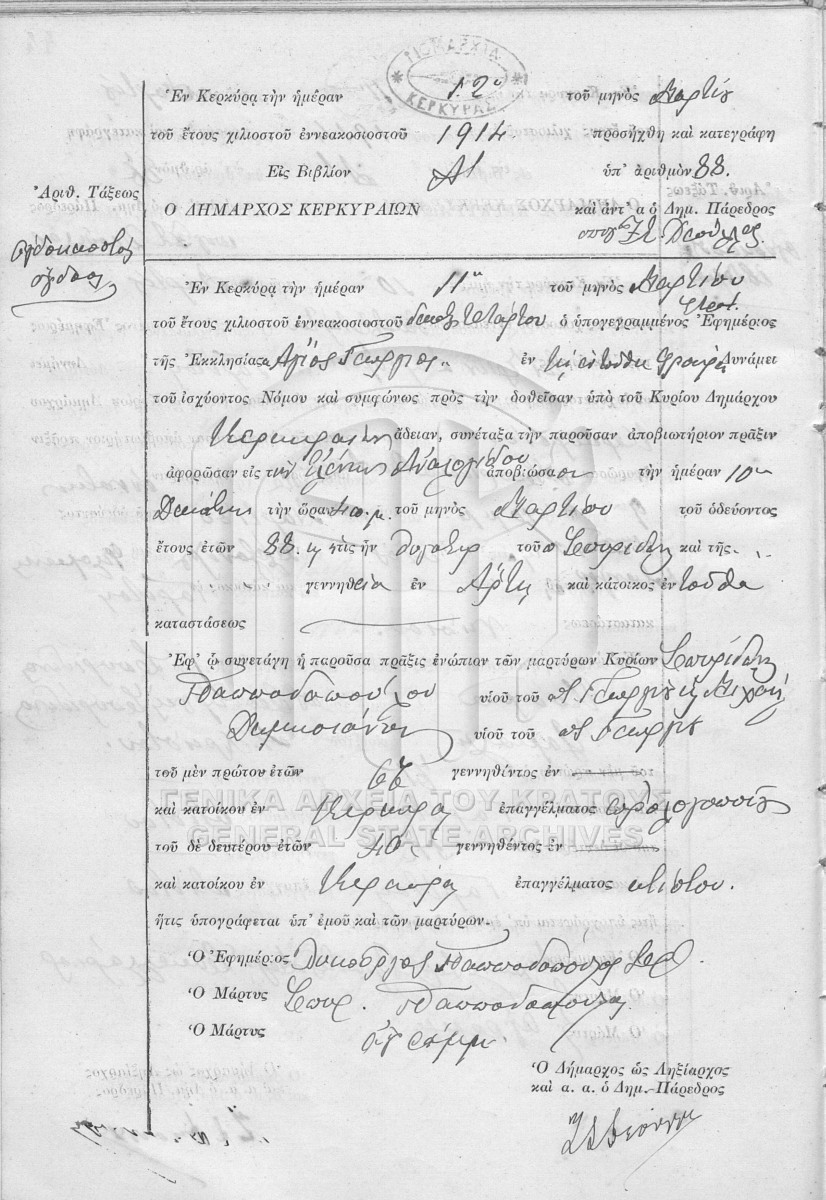 ΔΗΜΑΡΧΙΑ
ΚΕΡΚΥΡΑΣ
Ἐν Κερκύρᾳ τὴν ἡμέραν 12 τοῦ μηνὸς Μαρτίου
τοῦ ἔτους χιλιοστοῦ ἐννεακοσιοστοῦ 1914 προσήχθη καὶ κατεγράφη
Εἰς Βιβλίον Α' ὑπ' ἀριθμὸν 88.
Ἀριθ. Τάξεως
Ο ΔΗΜΑΡΧΟΣ ΚΕΡΚΥΡΑΙΩΝ καὶ ἀντ' α ὁ Δημ. Πάρεδρος
Ἐν Κερκύρᾳ τὴν ἡμέραν 11 τοῦ μηνὸς Μαρτίου
τοῦ ἔτους χιλιοστοῦ ἐννεακοσιοστοῦ δεκάτου τετάρτου ὁ ὑπογεγραμμένος Ἐφημέριος
τῆς Ἐκκλησίας Ἁγίος Γεώργιος ἐν Δυνάμει
τοῦ ἰσχύοντος Νόμου καὶ συμφώνως πρὸς τὴν δοθεῖσαν ὑπὸ τοῦ Κυρίου Δημάρχου
Κερκυραίων ἄδειαν, συνέταξα τὴν παροῦσαν ἀποβιωτήριον πρᾶξιν
ἀφορῶσαν εἰς τὴν Ἑλένην ἀποβιώσασαν τὴν ἡμέραν 10
Δεκάτην τὴν ὥραν 4 π.μ. τοῦ μηνὸς Μαρτίου τοῦ ὁδεύοντος
ἔτους ἐτῶν 88 ἥτις ἦν θυγάτηρ τοῦ Σπυρίδων καὶ τῆς
γεννηθεῖσα ἐν Ἄρτῃ καὶ κάτοικος ἐνταῦθα
καταστάσεως
Ἐφ' ᾧ συνετάγη ἡ παροῦσα πρᾶξις ἐνώπιον τῶν μαρτύρων Κυρίων Σπυρίδων
Παππαδοπούλου υἱοῦ τοῦ Γεωργίου
υἱοῦ τοῦ Γεωργίου
τοῦ μὲν πρώτου ἐτῶν γεννηθέντος ἐν
καὶ κατοίκου ἐν Κερκύρᾳ ἐπαγγέλματος ὡρολογοποιός
ΓΕΝΙΚΑ ΑΡΧΕΙΑ ΤΟΥ ΚΡΑΤΟΥΣ
GENERAL STATE ARCHIVES
τοῦ δὲ δευτέρου ἐτῶν 40 γεννηθέντος ἐν
καὶ κατοίκου ἐν Κερκύρᾳ ἐπαγγέλματος κτίστου.
ἥτις ὑπογράφεται ὑπ' ἐμοῦ καὶ τῶν μαρτύρων.
Ὁ Ἐφημέριος Παππαδόπουλος
Ὁ Μάρτυς Σπυρ. Παππαδόπουλος
Ὁ Μάρτυς ἀγράμμ.
Ὁ Δήμαρχος ὡς Ληξίαρχος
καὶ α. α. ὁ Δημ. Πάρεδρος